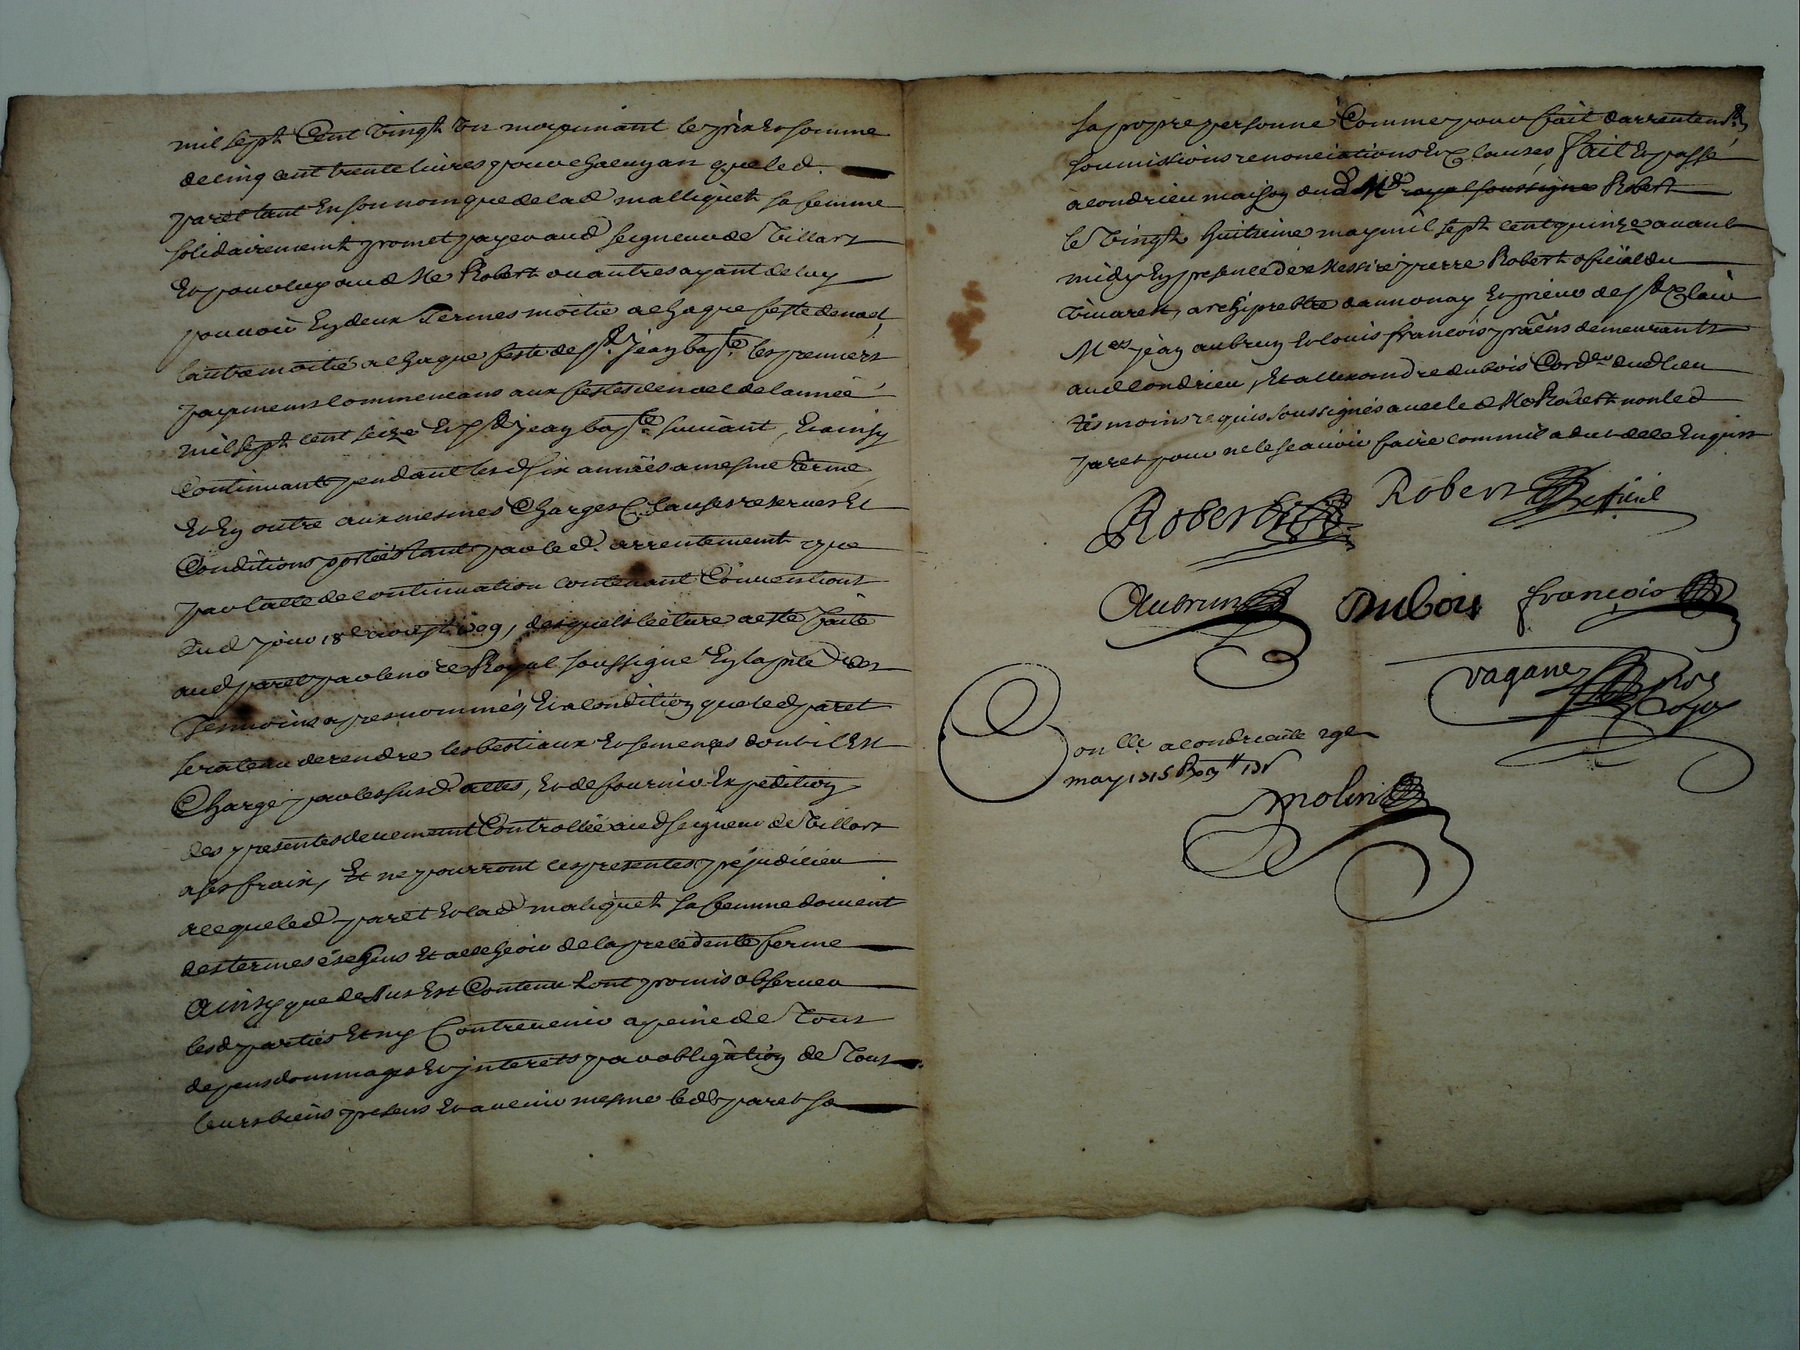 mil sept Cent vingt un moyennant le prix et somme
de cinq cent trente livres pour chacun an que led.
paret tant en son nom que de lad malliquet sa femme
solidairement promet payer aud seigneur de villars
et pour luy aud Me Robert ou autres ayant de luy
pouvoir en deux Termes moitie a chaque feste de noel
lautre moitié a chaque feste de st jean bapte les premiers
payemens commencans aux festes de noel de lannée
mil sept cent seize et st jean bapte suivant, Et ainsy
Continuant pendant lesd six années a mesme terme
et en outre aux mesmes Charges Clauses reserves et
Conditions portées tant par led. arrentement que
par lacte de continuation contenant Conventions
dud jour 18e 1709, desquels lecture a esté faite
aud paret par le nore Royal soussigné en la pnce des
Temoins apres nommés, Et a condition que led paret
sera tenu de rendre les bestiaux et semences dont il Est
Chargé par les susd. actes, et de fournir Expedition
des presentes deuement Controllée aud seigneur de villars
a ses frais, Et ne pourront ces presentes prejudicier
a ce que led paret et lad maliquet sa femme doivent
des termes échus et a echoir de la precedente ferme
Ainsy que dessus est Contenu l'ont promis observer
lesd parties et ny Contrevenir a peine de Tous
depens dommages et interets par obligation de Tous
leurs biens presens et avenir mesme led paret sa
sa propre personne Comme pour fait darrentemt
soumissions renonciations et Clauses, fait et passé
a condrieu maison dud Me royal soussigné Robert
le vingt huitieme may mil sept cent quinze avant
midy en presence de Messire pierre Robert oficial du
vivarets, archiprebtre dannonay et prieur de st Clair
Mes jean aubrun et louis françois prãens demeurants
aud condrieu, Et allexandre dubois Cordr dud lieu
tesmoins requis soussignés avec led Me Robert non led
paret pour ne le scavoir faire comme il a dit de ce enquis
Robert Robert official
Aubrun Dubois françois
vaganey nore Royal
Conllé a condrieu le 29e
may 1715
molin